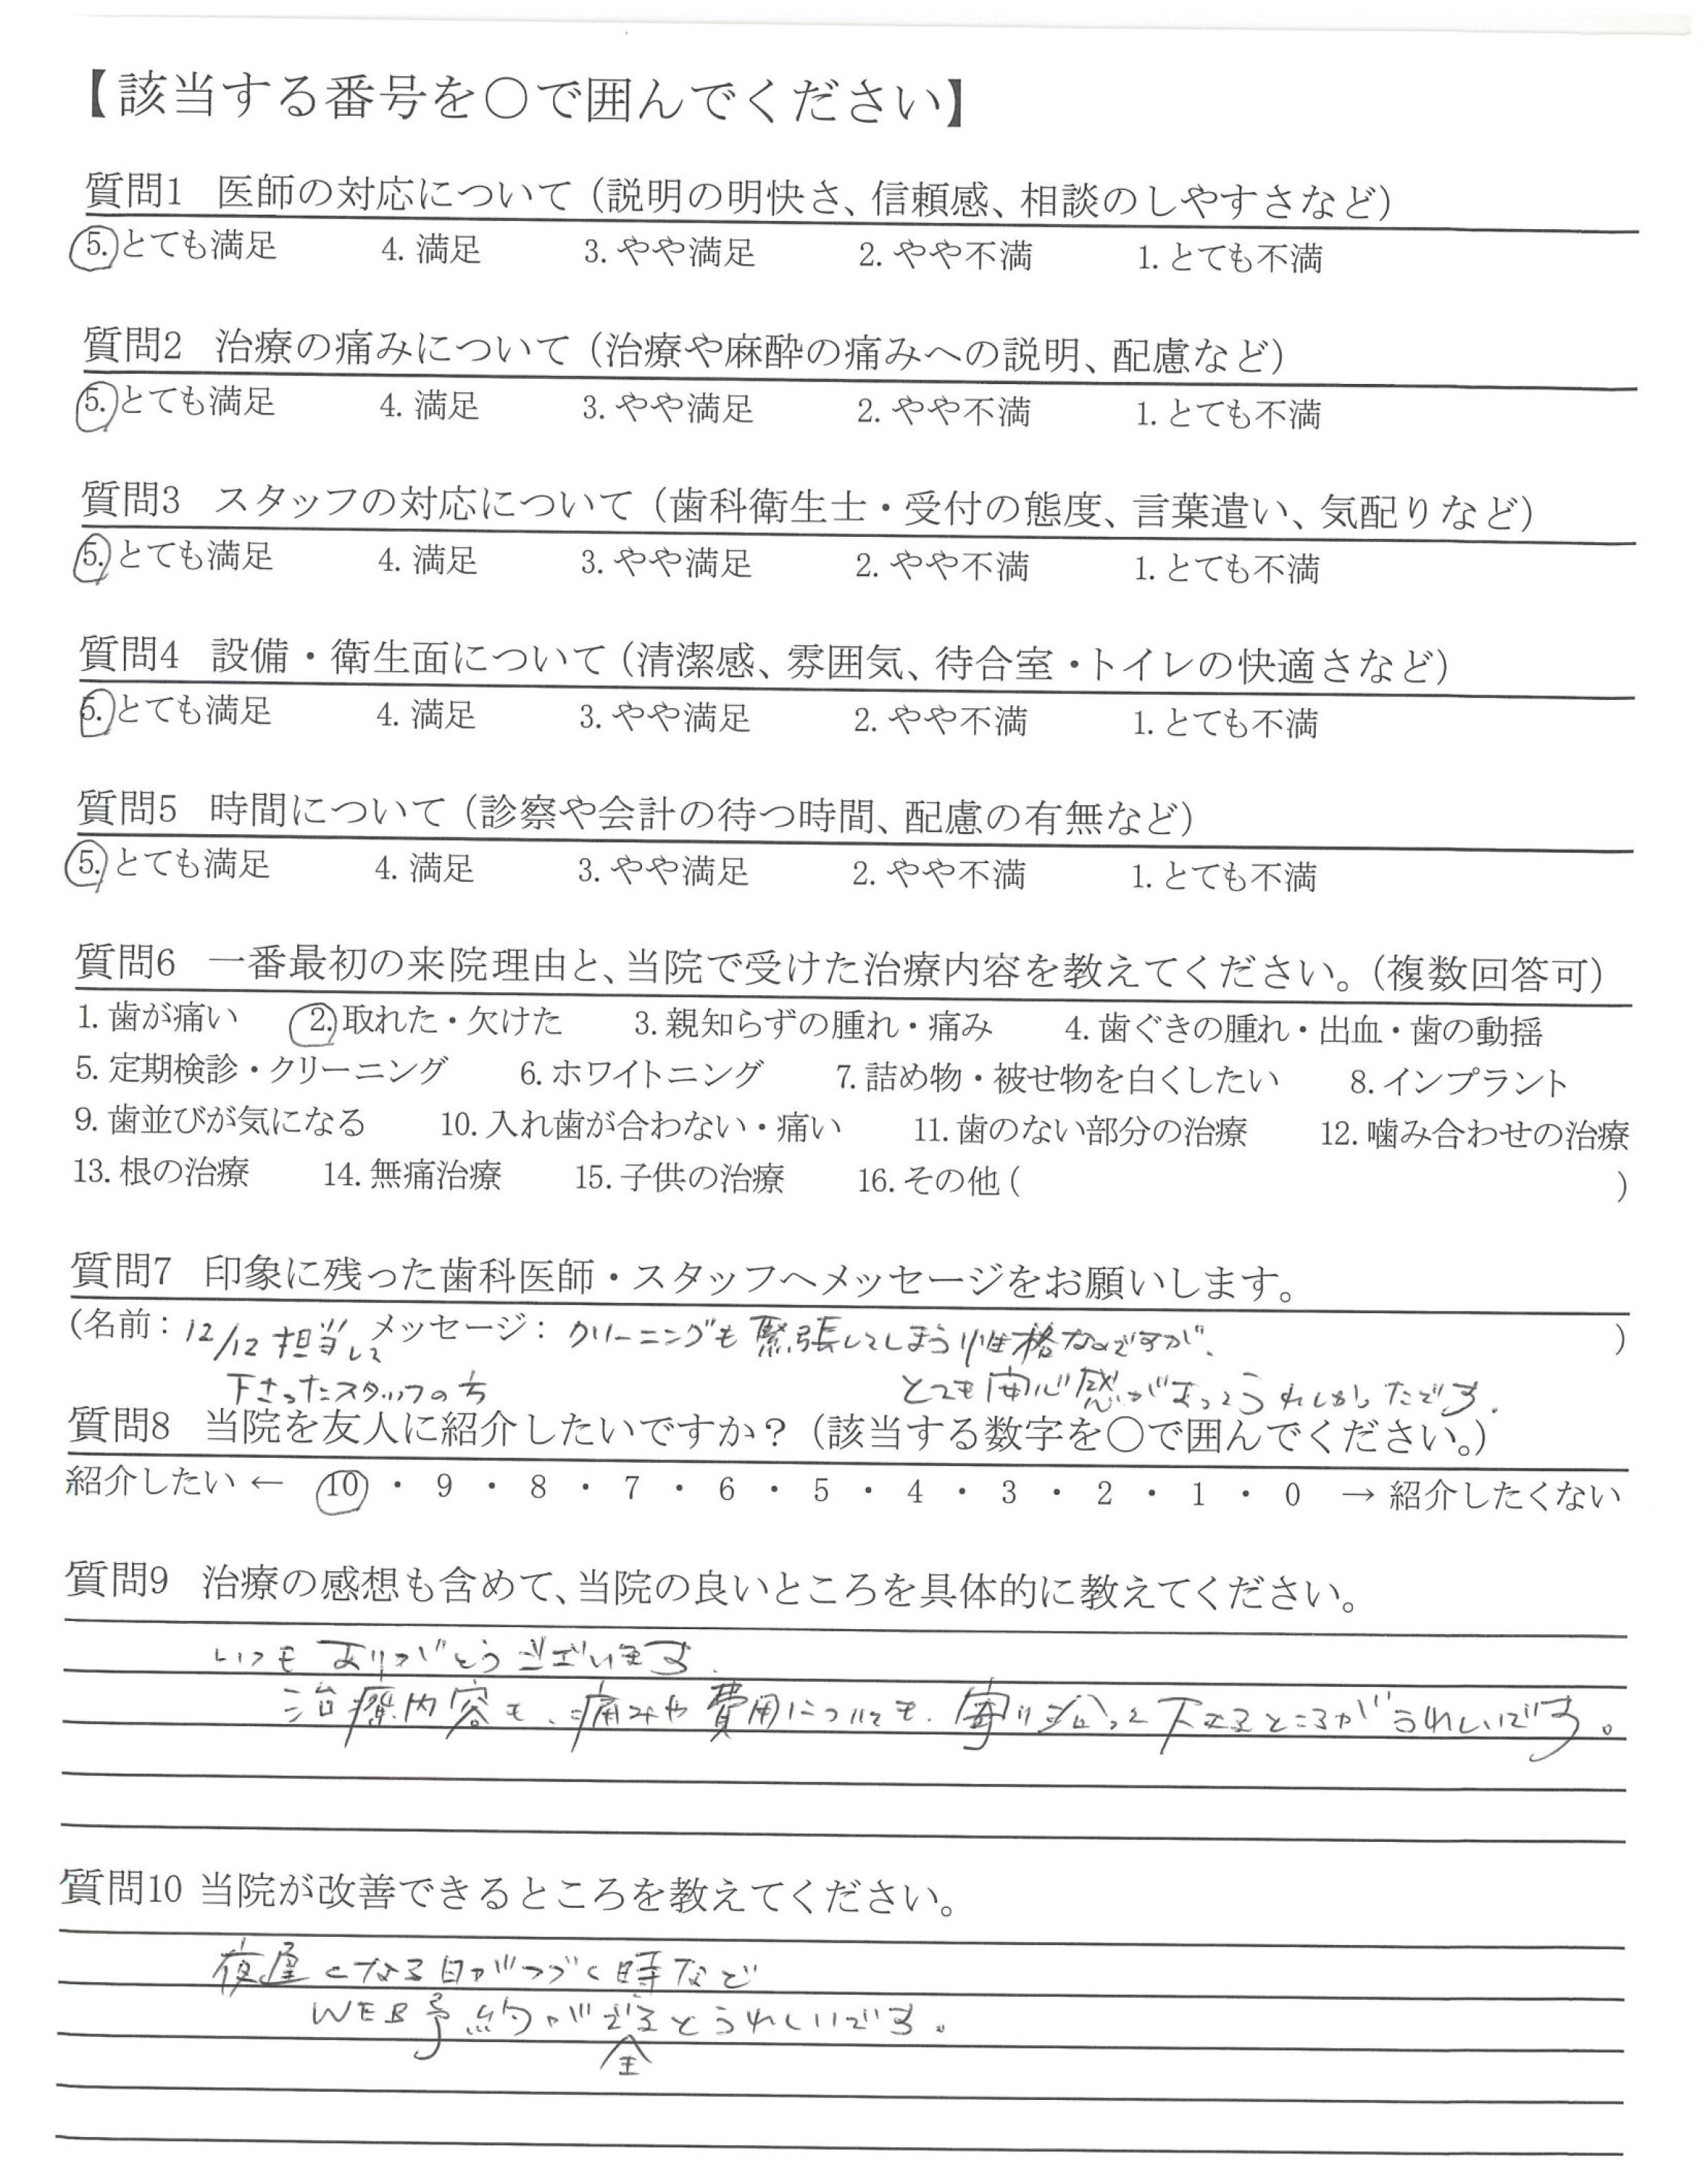 【該当する番号を〇で囲んでください】
質問1 医師の対応について（説明の明快さ、信頼感、相談のしやすさなど）
5.とても満足 4.満足 3.やや満足 2.やや不満 1.とても不満
質問2 治療の痛みについて（治療や麻酔の痛みへの説明、配慮など）
5.とても満足 4.満足 3.やや満足 2.やや不満 1.とても不満
質問3 スタッフの対応について（歯科衛生士・受付の態度、言葉遣い、気配りなど）
5.とても満足 4.満足 3.やや満足 2.やや不満 1.とても不満
質問4 設備・衛生面について（清潔感、雰囲気、待合室・トイレの快適さなど）
5.とても満足 4.満足 3.やや満足 2.やや不満 1.とても不満
質問5 時間について（診察や会計の待つ時間、配慮の有無など）
5.とても満足 4.満足 3.やや満足 2.やや不満 1.とても不満
質問6 一番最初の来院理由と、当院で受けた治療内容を教えてください。（複数回答可）
1.歯が痛い 2.取れた・欠けた 3.親知らずの腫れ・痛み 4.歯ぐきの腫れ・出血・歯の動揺
5.定期検診・クリーニング 6.ホワイトニング 7.詰め物・被せ物を白くしたい 8.インプラント
9.歯並びが気になる 10.入れ歯が合わない・痛い 11.歯のない部分の治療 12.噛み合わせの治療
13.根の治療 14.無痛治療 15.子供の治療 16.その他( )
質問7 印象に残った歯科医師・スタッフへメッセージをお願いします。
(名前：12/12 担当して メッセージ：クリーニングも緊張してしまう性格なのですが、 )
下さったスタッフの方 とても安心感があってうれしかったです。
質問8 当院を友人に紹介したいですか？（該当する数字を〇で囲んでください。）
紹介したい ← 10 ・ 9 ・ 8 ・ 7 ・ 6 ・ 5 ・ 4 ・ 3 ・ 2 ・ 1 ・ 0 → 紹介したくない
質問9 治療の感想も含めて、当院の良いところを具体的に教えてください。
いつもありがとうございます。
治療内容も、痛みや費用についても、寄り沿って下さるところがうれしいです。
質問10 当院が改善できるところを教えてください。
夜遅くなる日がつづく時など
WEB予約ができるとうれしいです。